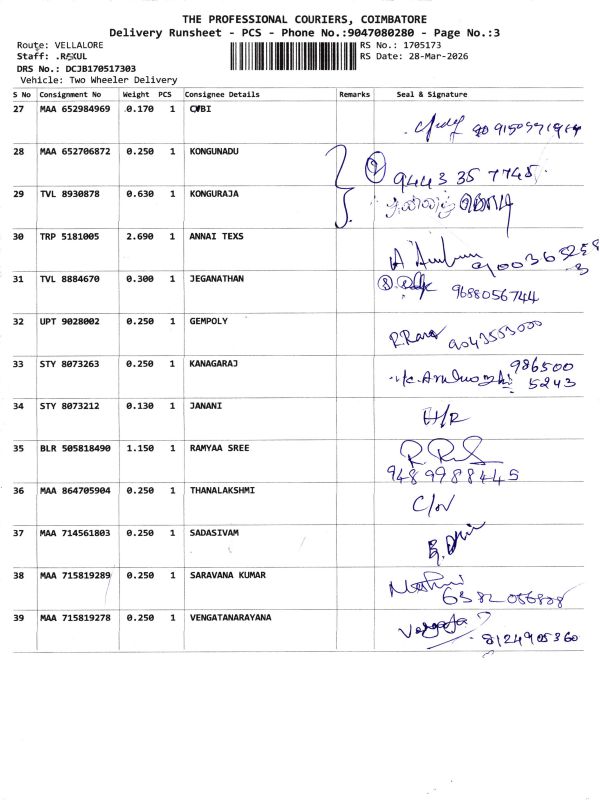 THE PROFESSIONAL COURIERS, COIMBATORE
Delivery Runsheet - PCS - Phone No.:9047080280 - Page No.:3
Route: VELLALORE RS No.: 1705173
Staff: .RAKUL RS Date: 28-Mar-2026
DRS No.: DCJB170517303
Vehicle: Two Wheeler Delivery
S No Consignment No Weight PCS Consignee Details Remarks Seal & Signature
27 MAA 652984969 0.170 1
28 MAA 652706872 0.250 1 KONGUNADU
2 9443 35 7745
29 TVL 8930878 0.630 1 KONGURAJA
30 TRP 5181005 2.690 1 ANNAI TEXS
31 TVL 8884670 0.300 1 JEGANATHAN 9688056744
32 UPT 9028002 0.250 1 GEMPOLY
9043553000
33 STY 8073263 0.250 1 KANAGARAJ 986500
5243
34 STY 8073212 0.130 1 JANANI
H/R
35 BLR 505818490 1.150 1 RAMYAA SREE
9489988445
36 MAA 864705904 0.250 1 THANALAKSHMI
37 MAA 714561803 0.250 1 SADASIVAM
38 MAA 715819289 0.250 1 SARAVANA KUMAR
39 MAA 715819278 0.250 1 VENGATANARAYANA
8124905360